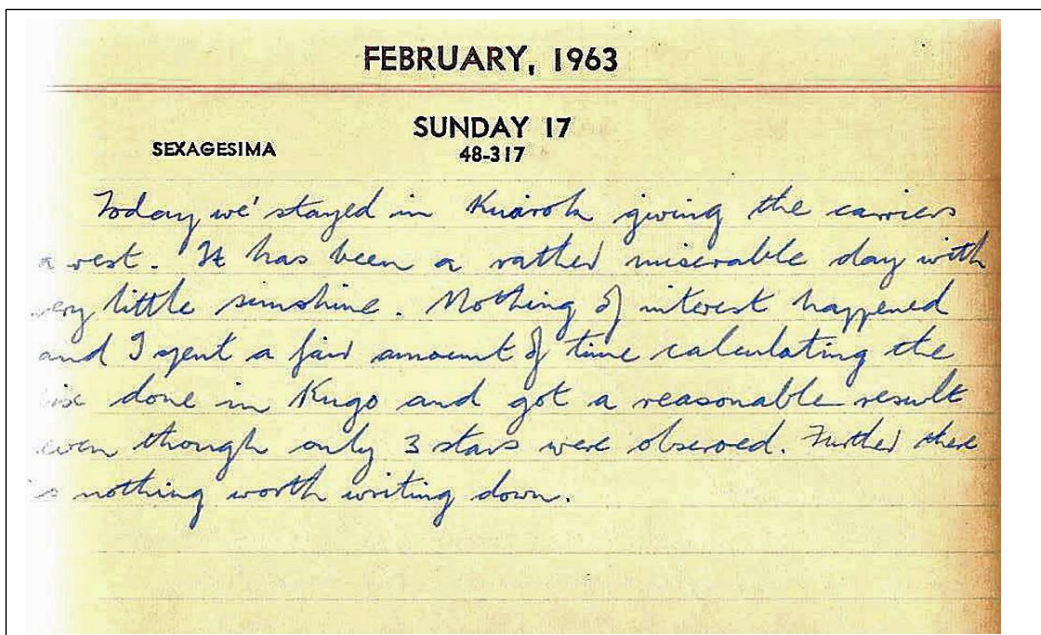 FEBRUARY, 1963
SUNDAY 17
SEXAGESIMA
48-317
Today we' stayed in Kwarok giving the carriers
a rest. It has been a rather miserable day with
very little sunshine. Nothing of interest happened
and I spent a fair amount of time calculating the
fix done in Kugo and got a reasonable result
even though only 3 stars were observed. Further there
is nothing worth writing down.